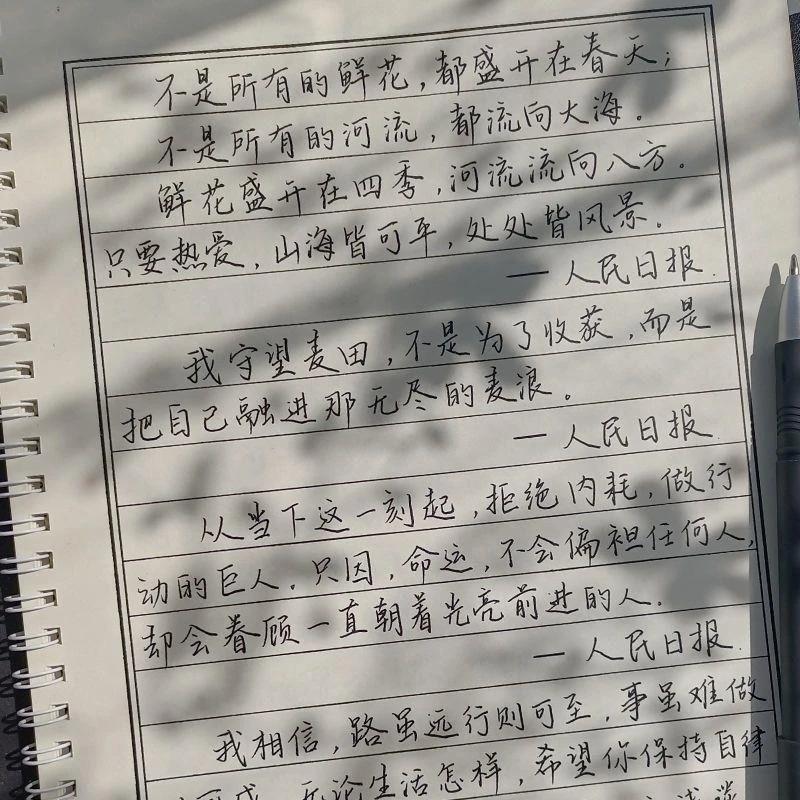 不是所有的鲜花，都盛开在春天；
不是所有的河流，都流向大海。
鲜花盛开在四季，河流流向八方。
只要热爱，山海皆可平，处处皆风景。
— 人民日报.
我守望麦田，不是为了收获，而是
把自己融进那无尽的麦浪。
— 人民日报.
从当下这一刻起，拒绝内耗，做行
动的巨人。只因，命运，不会偏袒任何人，
却会眷顾一直朝着光亮前进的人.
— 人民日报.
我相信，路虽远行则可至，事虽难做
无论生活怎样，希望你保持自律